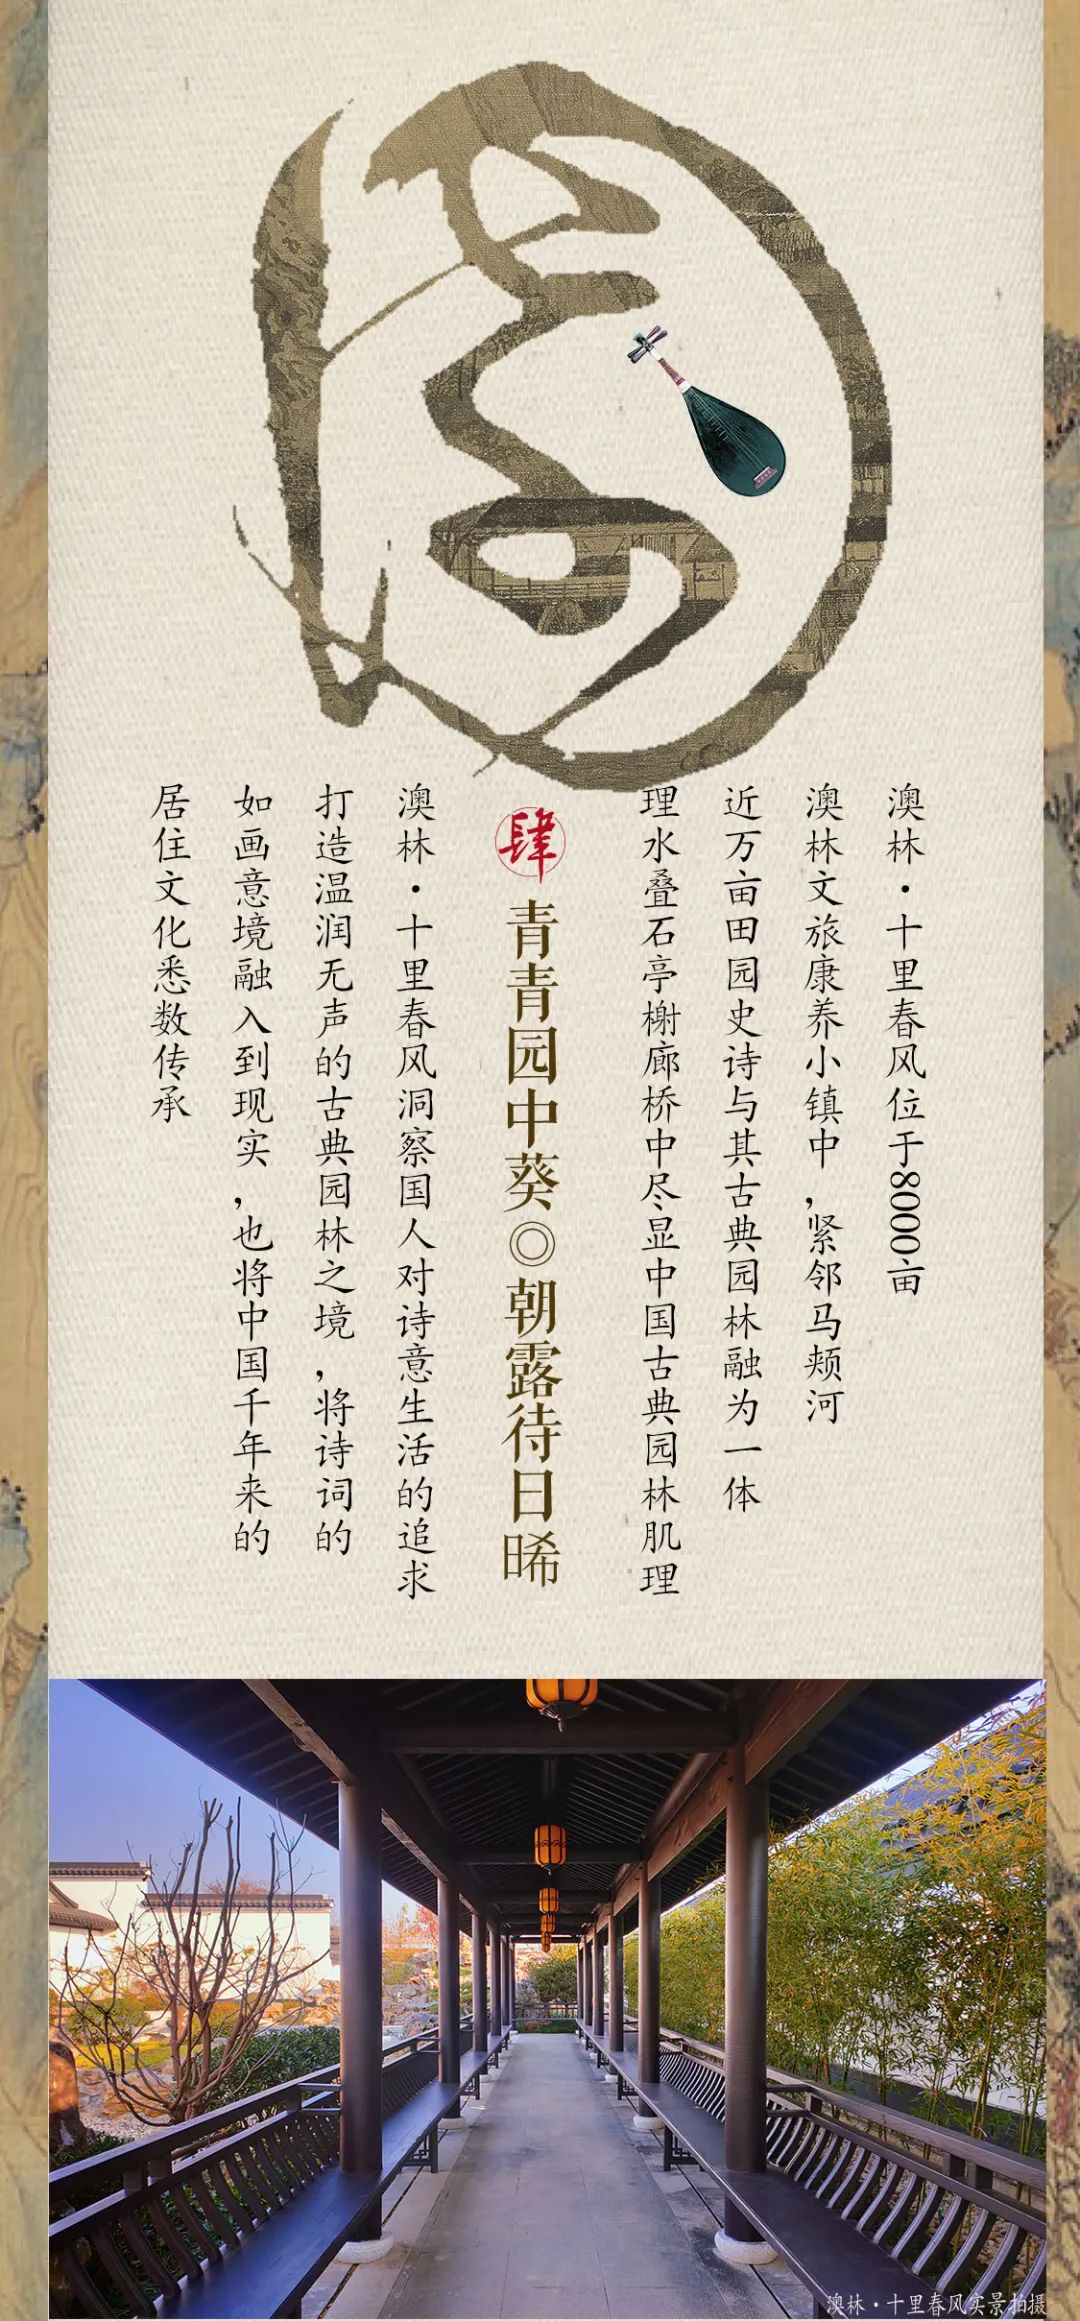 园
澳林·十里春风位于8000亩
澳林文旅康养小镇中，紧邻马颊河
近万亩田园史诗与其古典园林融为一体
理水叠石亭榭廊桥中尽显中国古典园林肌理
肆
青青园中葵◎朝露待日晞
澳林·十里春风洞察国人对诗意生活的追求
打造温润无声的古典园林之境，将诗词的
如画意境融入到现实，也将中国千年来的
居住文化悉数传承
澳林·十里春风实景拍摄